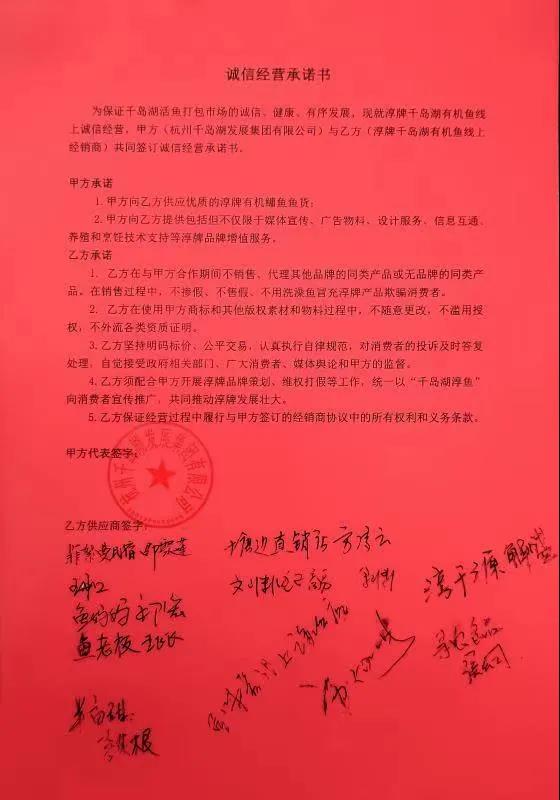 诚信经营承诺书
为保证千岛湖活鱼打包市场的诚信、健康、有序发展，现就淳牌千岛湖有机鱼线
上诚信经营，甲方（杭州千岛湖发展集团有限公司）与乙方（淳牌千岛湖有机鱼线上
经销商）共同签订诚信经营承诺书。
甲方承诺
1.甲方向乙方供应优质的淳牌有机鳙鱼鱼货；
2.甲方向乙方提供包括但不仅限于媒体宣传、广告物料、设计服务、信息互通、
养殖和烹饪技术支持等淳牌品牌增值服务。
乙方承诺
1. 乙方在与甲方合作期间不销售、代理其他品牌的同类产品或无品牌的同类产
品。在销售过程中，不掺假、不售假、不用洗澡鱼冒充淳牌产品欺骗消费者。
2. 乙方在使用甲方商标和其他版权素材和物料过程中，不随意更改，不滥用授
权，不外流各类资质证明。
3.乙方坚持明码标价、公平交易，认真执行自律规范，对消费者的投诉及时答复
处理，自觉接受政府相关部门、广大消费者、媒体舆论和甲方的监督。
4.乙方须配合甲方开展淳牌品牌策划、维权打假等工作，统一以“千岛湖淳鱼”
向消费者宣传推广，共同推动淳牌发展壮大。
5.乙方保证经营过程中履行与甲方签订的经销商协议中的所有权利和义务条款。
甲方代表签字：
杭州千岛湖发展集团有限公司
乙方供应商签字：
塘边直销店
鱼妈妈
鱼老板